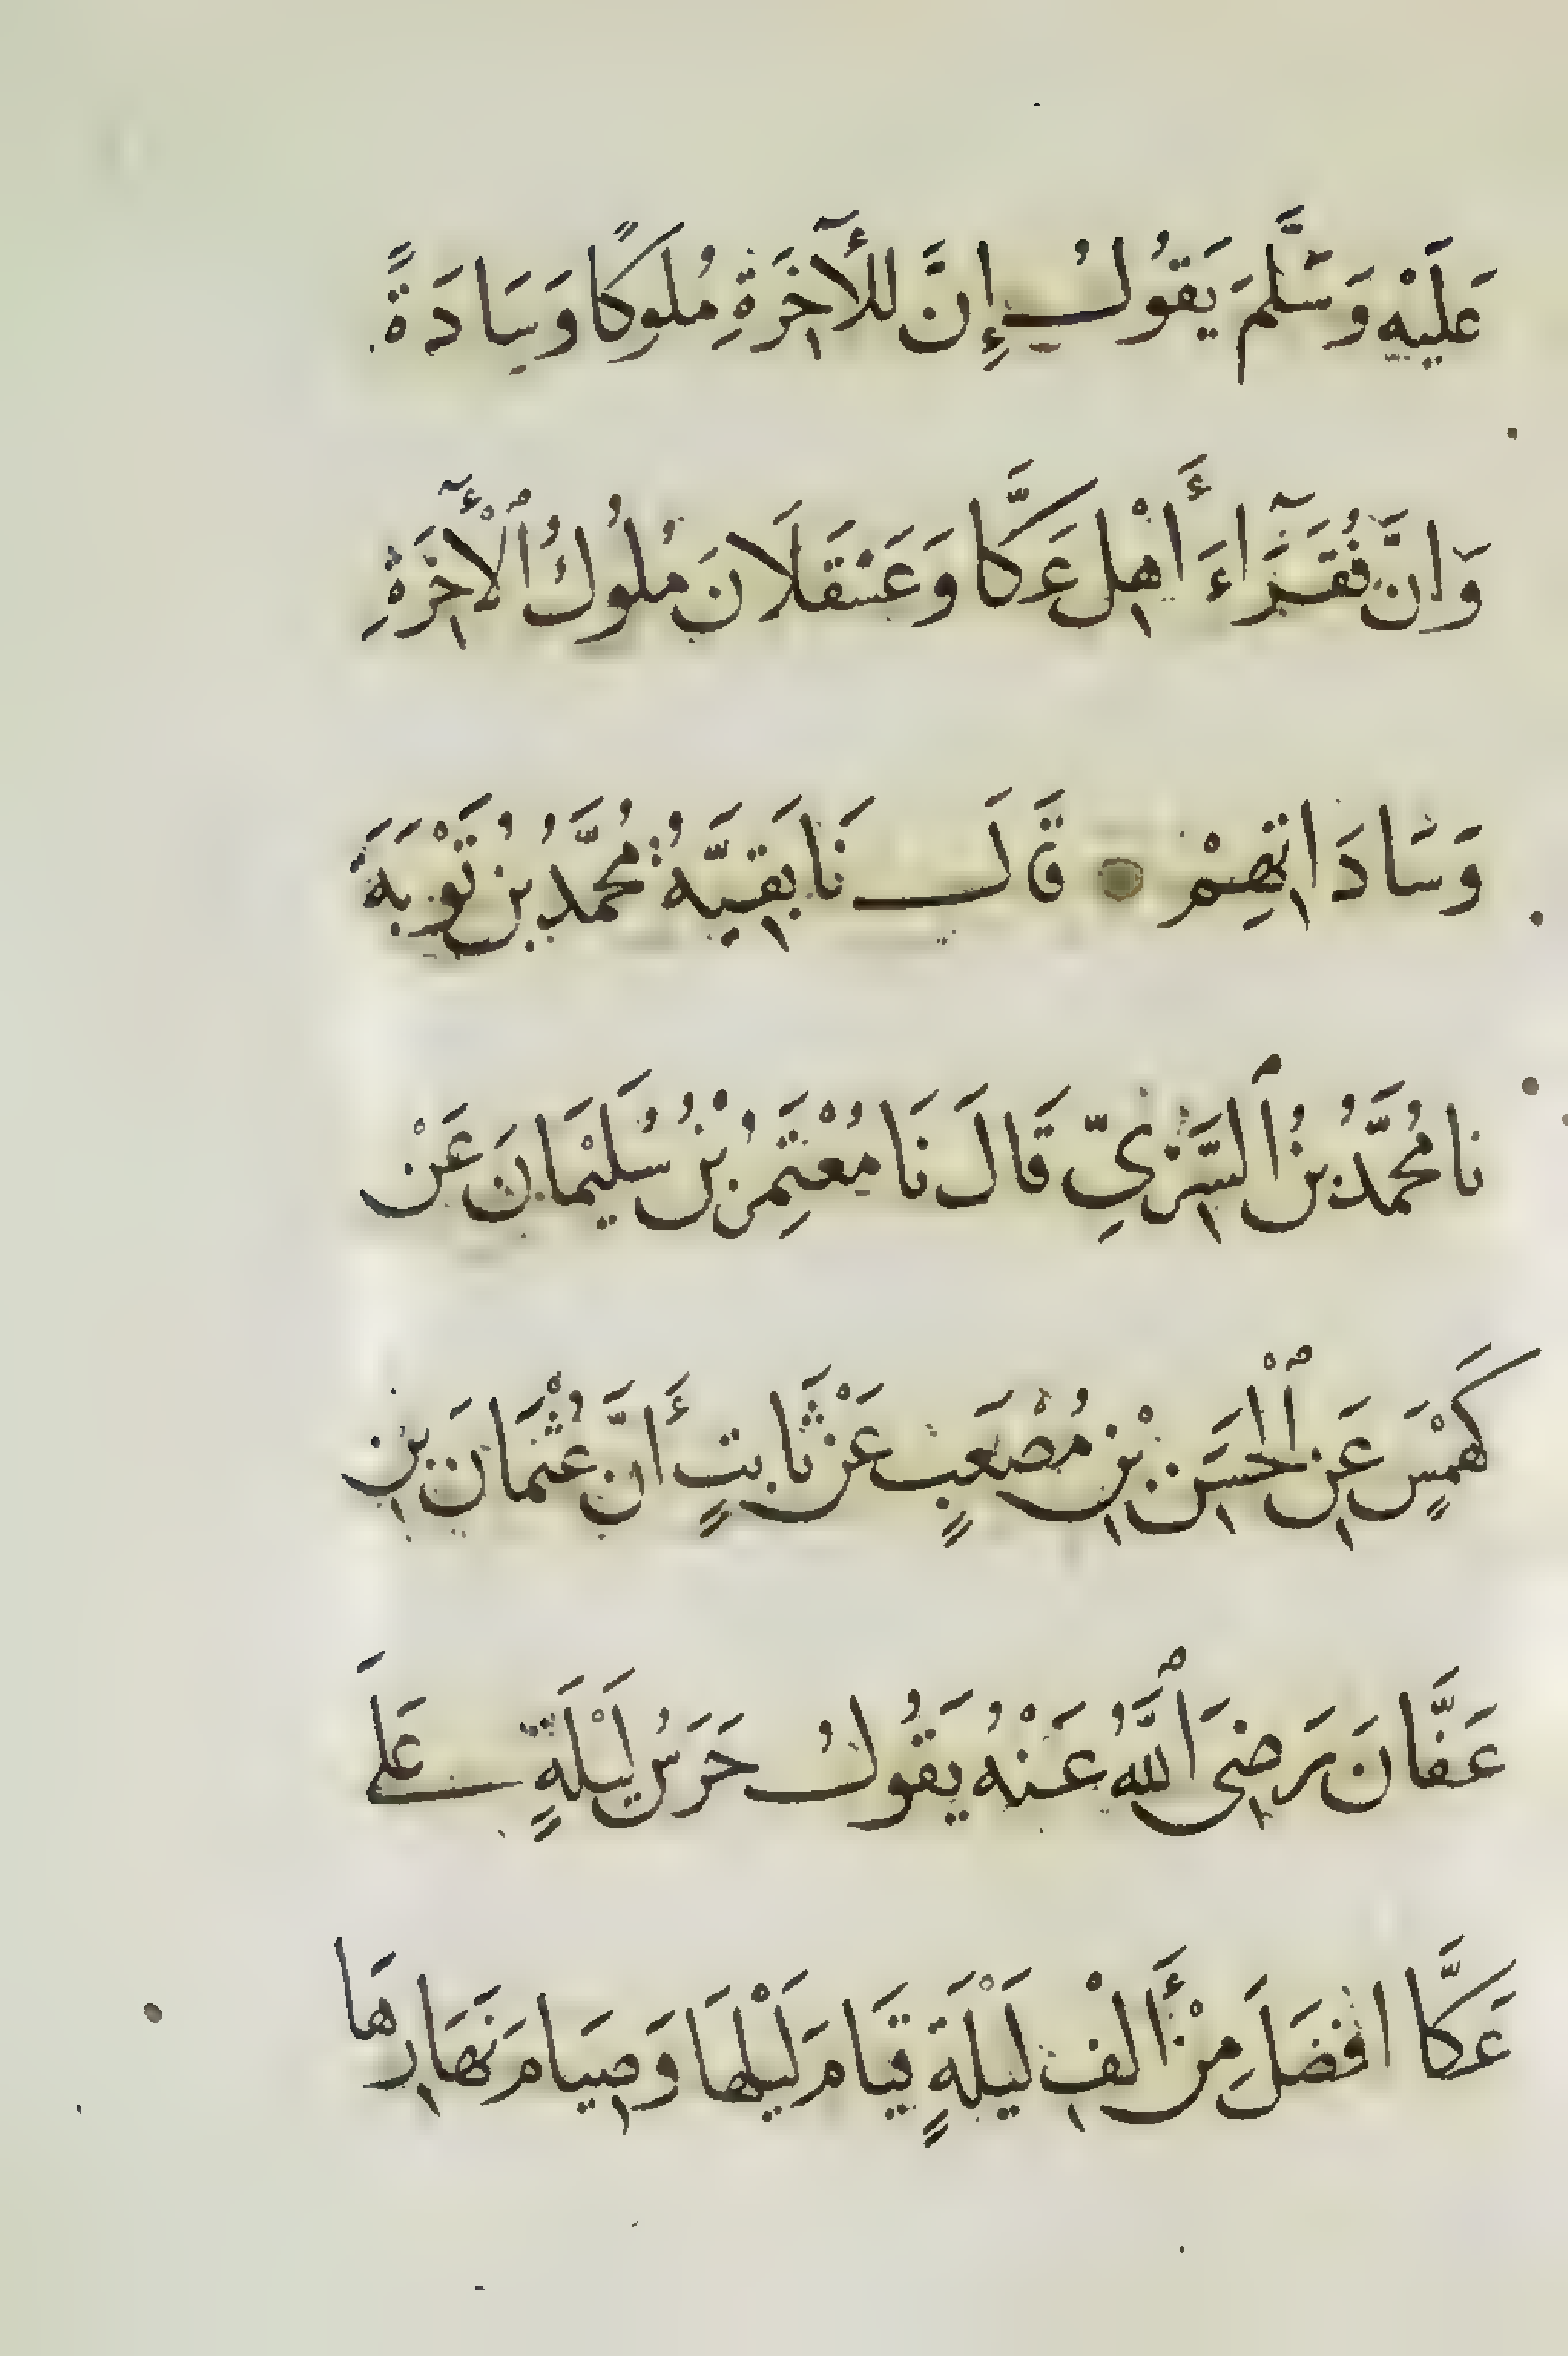 عَلَيْهِ وَسَلَّمَ يَقُولُ إِنَّ لِلْآخِرَةِ مُلُوكًا وَسَادَةً
وَإنَّ فُقَرَاءَ أَهْلِ عَكَّا وَعَسْقَلَانَ مُلُوكُ ٱلْأٓخِرَةِ
وَسَادَاتِهِمْ قَالَ نَا بَقِيَّةُ مُحَمَّدُ بنُ تَوْبَةَ
نا مُحَمَّدُ بنُ ٱلسَّرِيِّ قَالَ نَا مُعْتَمِرُ بْنُ سُلَيْمَانَ عَنْ
كَهْمَسٍ عَنِ ٱلْحَسَنِ بْنِ مُصْعَبٍ عَنْ ثَابتٍ أَنَّ عُثْمَانَ بنِ
عَفَّانَ رَضِىَ ٱللَّهُ عَنْهُ يَقُولُ حَرَسُ لَيْلَةٍ عَلَى
عَكَّا افْضَلَ مِنْ أَلْفِ لَيْلَةٍ قِيَامَ لَيْلَهَا وَصِيَامَ نَهَارِهَا